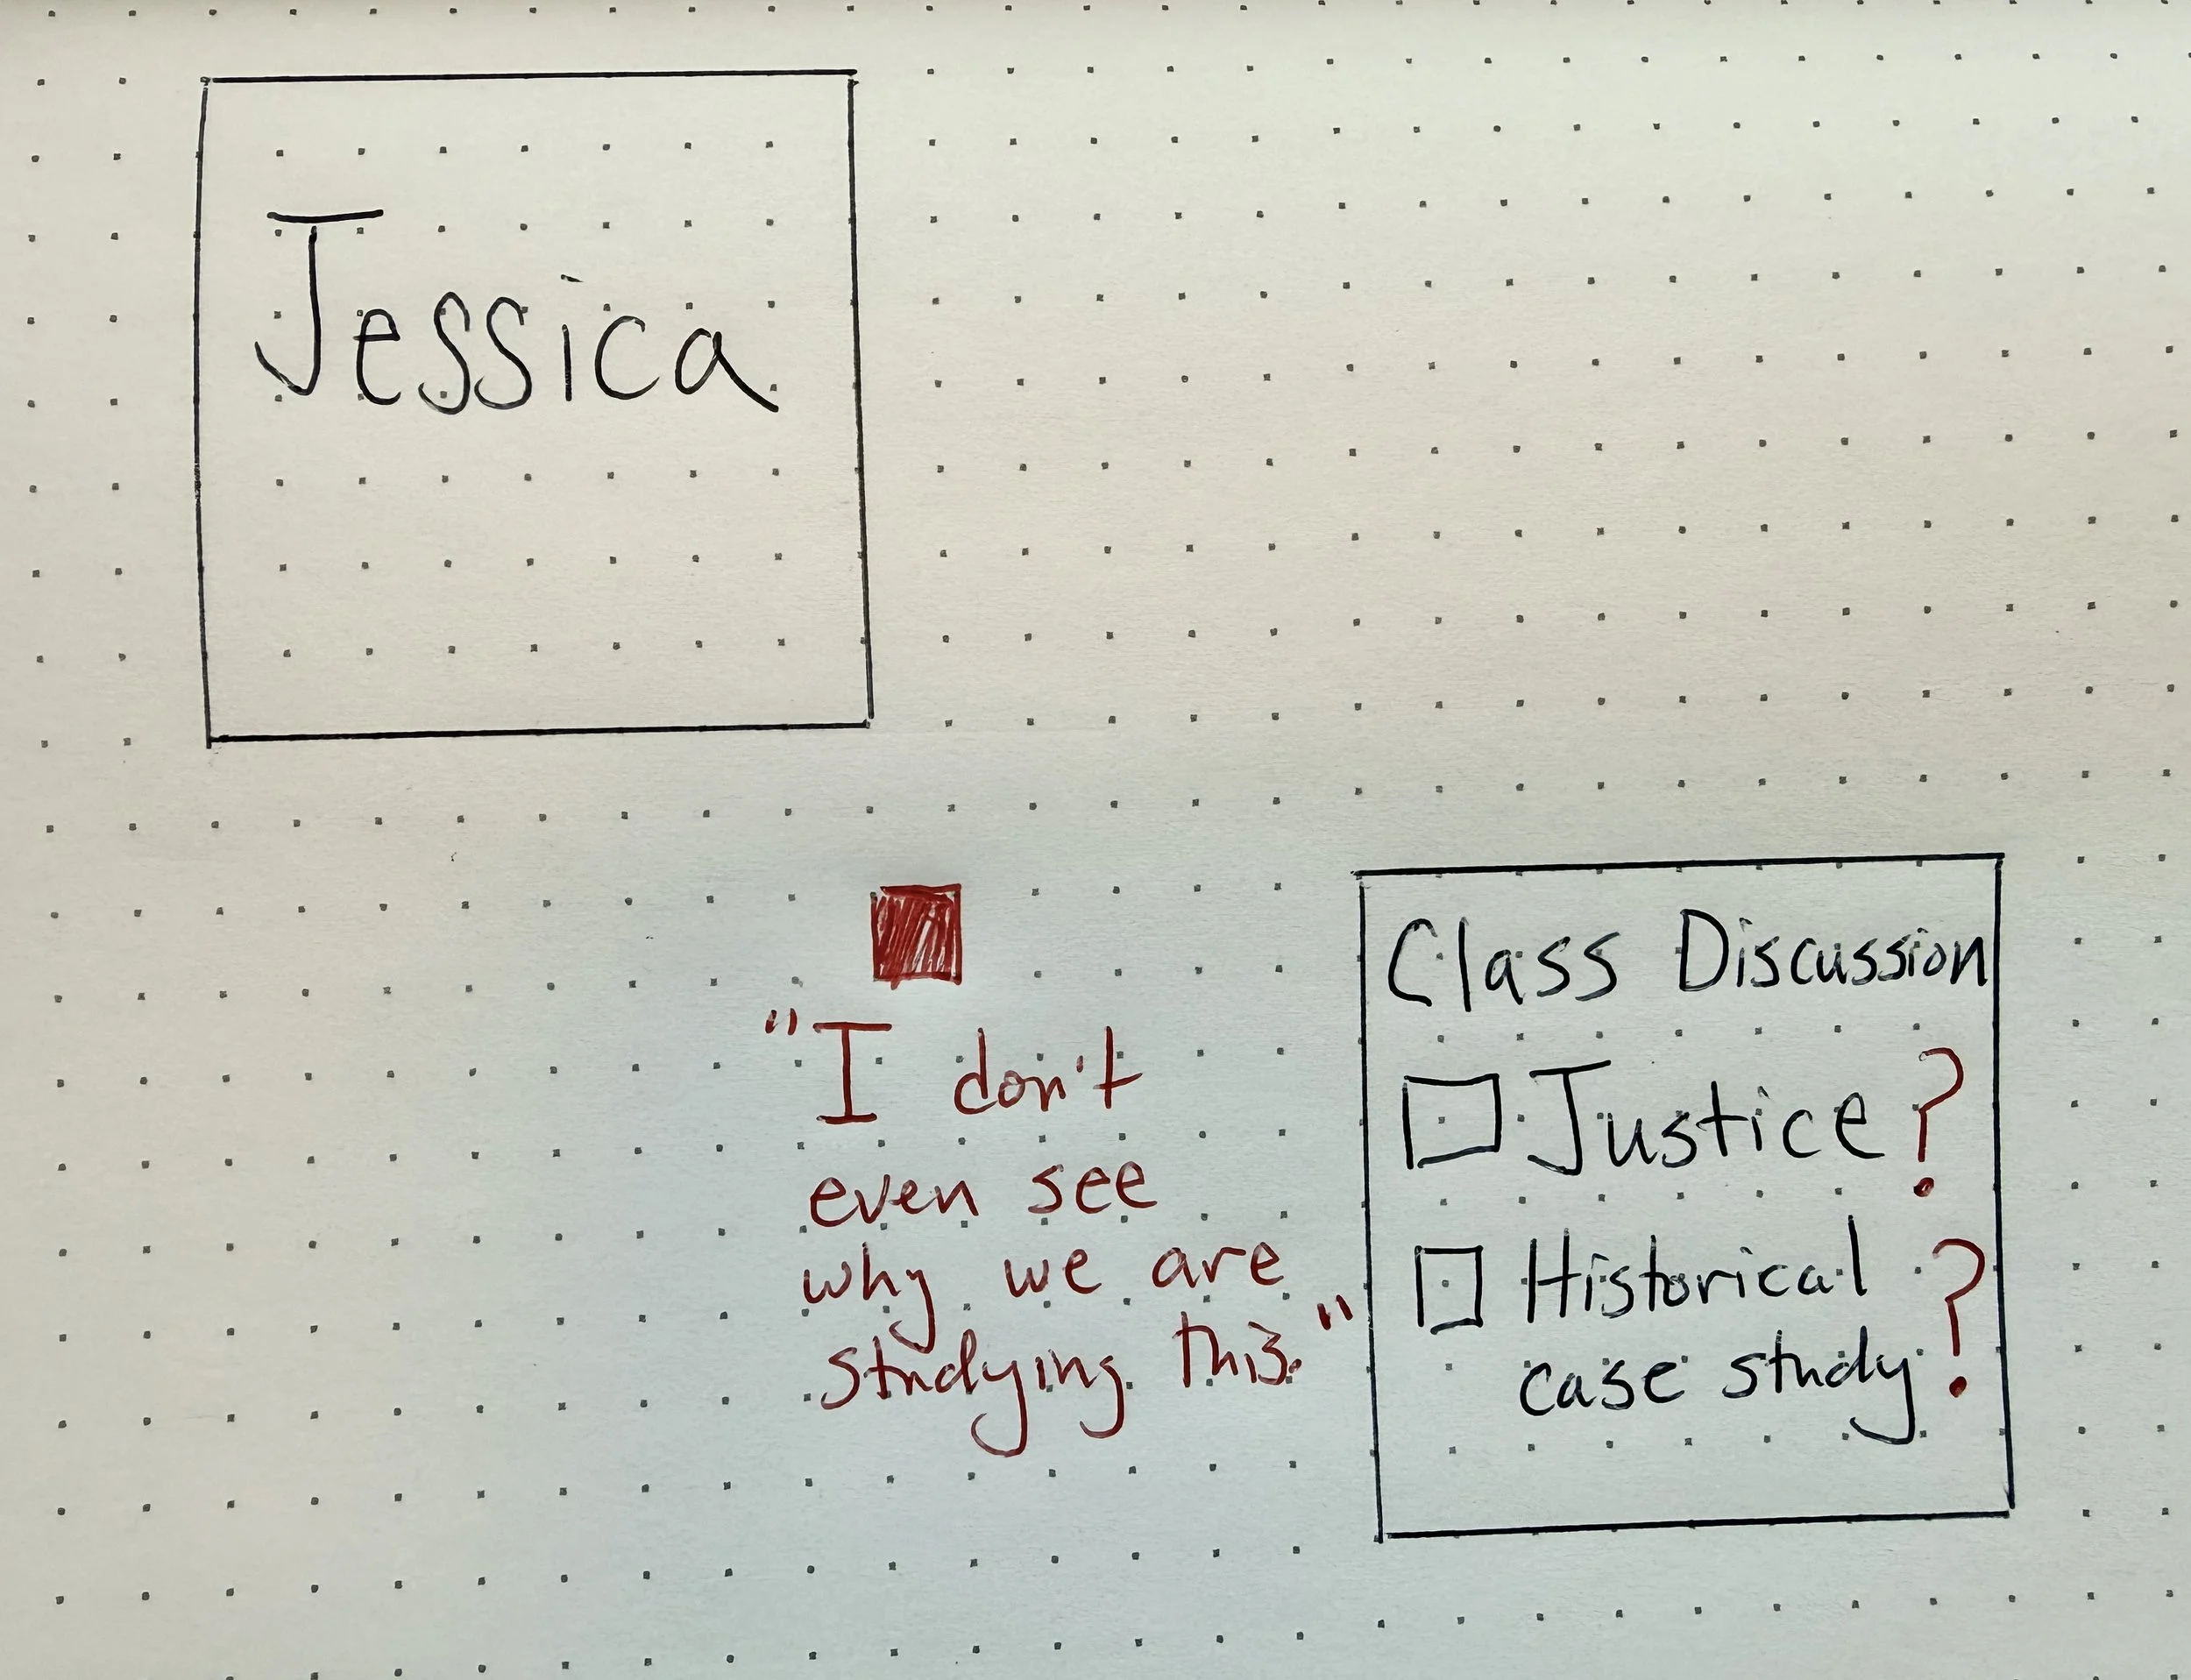 Jessica
"I don't
even see
why we are
studying this."
Class Discussion
Justice?
Historical ?
case study